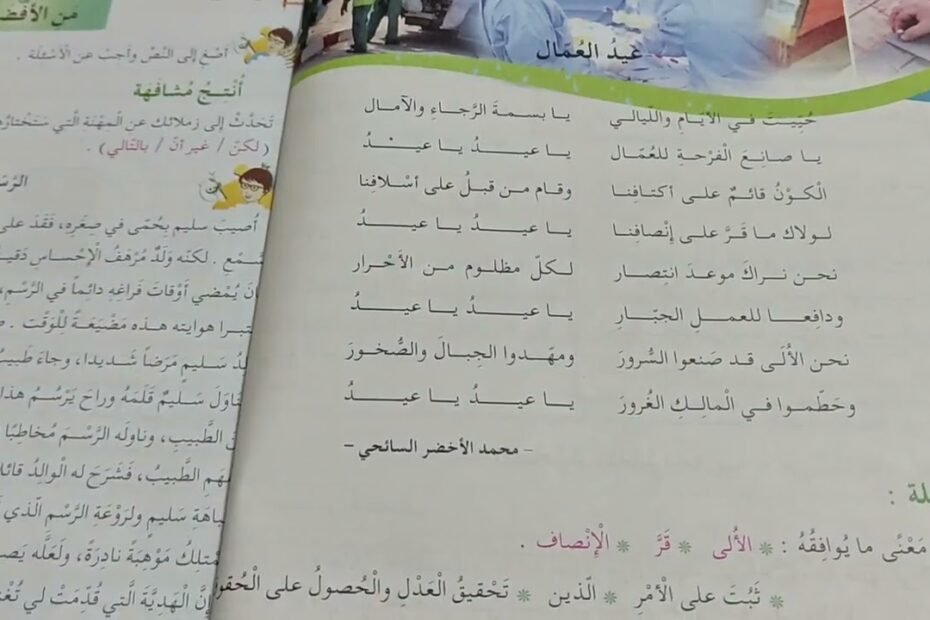 عيدُ العُمّال
حُيِّيتَ في الأيّامِ واللّيالي يا بسمةَ الرَّجاءِ والآمال
يا صانِعَ الْفرْحةِ للعُمّال يا عيدُ يا عيدُ
الْكوْنُ قائمٌ على أكتافِنا وقام من قبلُ على أسْلافِنا
لولاك ما قَرَّ على إنْصافِنا يا عيدُ يا عيدُ
نحن نراكَ موعدَ انتِصار لكلّ مظلوم من الأحْرار
ودافِعا للعملِ الجبّارِ يا عيدُ يا عيدُ
نحن الأُلَى قد صَنعوا السُّرورَ ومهّدوا الجِبالَ والصُّخورَ
وحَطّموا في الْمالِكِ الغُرورَ يا عيدُ يا عيدُ
– محمد الأخضر السائحي –
مَعْنًى ما يُوافِقُهُ : * الأُلى * قَرَّ * الْإنْصاف .
* ثَبُتَ على الْأمْرِ * الّذين * تَحْقيقُ الْعَدْلِ والْحُصولُ على
من الأفض
أصْغِ إلى النّصِّ وأجبْ عن الْأسْئلة .
أُنْتِجُ مُشافَهَة
تَحَدَّثْ إلى زملائك عن الْمِهْنة الّتي سَتَخْتارُه
(لكنْ / غير أنّ / بالتّالي) .
أُصيبَ سليم بحُمّى في صِغَرِهِ، فَقَدَ على
لكنّه وَلَدٌ مُرْهَفُ الْإحْساسِ
يُمْضي أوْقاتَ فَراغِهِ دائماً في الرَّسْمِ،
هوايته هذه مَضْيَعَةً لِلْوَقْت .
سَليم مَرَضاً شَديدا، وجاءَ طَبيبٌ
سَليمٌ قَلَمَهُ وراحَ يَرْسُمُ هذا
الطَّبيبِ، وناولَه الرَّسْمَ مُخاطِبًا
الطَّبيبُ، فَشَرَحَ له الْوالِدُ قائلا
سَليمٍ ولِرَوْعَةِ الرَّسْم الّذي
مَوْهِبَةً نادِرَةً، ولَعَلَّه
إنَّ الْهَدِيَّةَ الَّتي قُدِّمَتْ لي